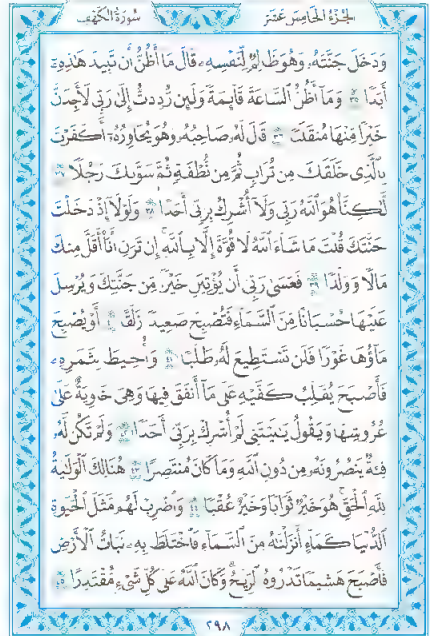 سُورَةُ الكَهْفِ الجُزْءُ الخَامِسَ عَشَرَ
وَدَخَلَ جَنَّتَهُۥ وَهُوَ ظَالِمٌ لِّنَفْسِهِۦ قَالَ مَآ أَظُنُّ أَن تَبِيدَ هَٰذِهِۦٓ
أَبَدًا ٣٥ وَمَآ أَظُنُّ ٱلسَّاعَةَ قَآئِمَةً وَلَئِن رُّدِدتُّ إِلَىٰ رَبِّى لَأَجِدَنَّ
خَيْرًا مِّنْهَا مُنقَلَبًا ٣٦ قَالَ لَهُۥ صَاحِبُهُۥ وَهُوَ يُحَاوِرُهُۥٓ أَكَفَرْتَ
بِٱلَّذِى خَلَقَكَ مِن تُرَابٍ ثُمَّ مِن نُّطْفَةٍ ثُمَّ سَوَّىٰكَ رَجُلًا ٣٧
لَّٰكِنَّا۠ هُوَ ٱللَّهُ رَبِّى وَلَآ أُشْرِكُ بِرَبِّىٓ أَحَدًا ٣٨ وَلَوْلَآ إِذْ دَخَلْتَ
جَنَّتَكَ قُلْتَ مَا شَآءَ ٱللَّهُ لَا قُوَّةَ إِلَّا بِٱللَّهِ إِن تَرَنِ أَنَا۠ أَقَلَّ مِنكَ
مَالًا وَوَلَدًا ٣٩ فَعَسَىٰ رَبِّىٓ أَن يُؤْتِيَنِ خَيْرًا مِّن جَنَّتِكَ وَيُرْسِلَ
عَلَيْهَا حُسْبَانًا مِّنَ ٱلسَّمَآءِ فَتُصْبِحَ صَعِيدًا زَلَقًا ٤٠ أَوْ يُصْبِحَ
مَآؤُهَا غَوْرًا فَلَن تَسْتَطِيعَ لَهُۥ طَلَبًا ٤١ وَأُحِيطَ بِثَمَرِهِۦ
فَأَصْبَحَ يُقَلِّبُ كَفَّيْهِ عَلَىٰ مَآ أَنفَقَ فِيهَا وَهِىَ خَاوِيَةٌ عَلَىٰ
عُرُوشِهَا وَيَقُولُ يَٰلَيْتَنِى لَمْ أُشْرِكْ بِرَبِّىٓ أَحَدًا ٤٢ وَلَمْ تَكُن لَّهُۥ
فِئَةٌ يَنصُرُونَهُۥ مِن دُونِ ٱللَّهِ وَمَا كَانَ مُنتَصِرًا ٤٣ هُنَالِكَ ٱلْوَلَٰيَةُ
لِلَّهِ ٱلْحَقِّ هُوَ خَيْرٌ ثَوَابًا وَخَيْرٌ عُقْبًا ٤٤ وَٱضْرِبْ لَهُم مَّثَلَ ٱلْحَيَوٰةِ
ٱلدُّنْيَا كَمَآءٍ أَنزَلْنَٰهُ مِنَ ٱلسَّمَآءِ فَٱخْتَلَطَ بِهِۦ نَبَاتُ ٱلْأَرْضِ
فَأَصْبَحَ هَشِيمًا تَذْرُوهُ ٱلرِّيَٰحُ وَكَانَ ٱللَّهُ عَلَىٰ كُلِّ شَىْءٍ مُّقْتَدِرًا ٤٥
٢٩٨